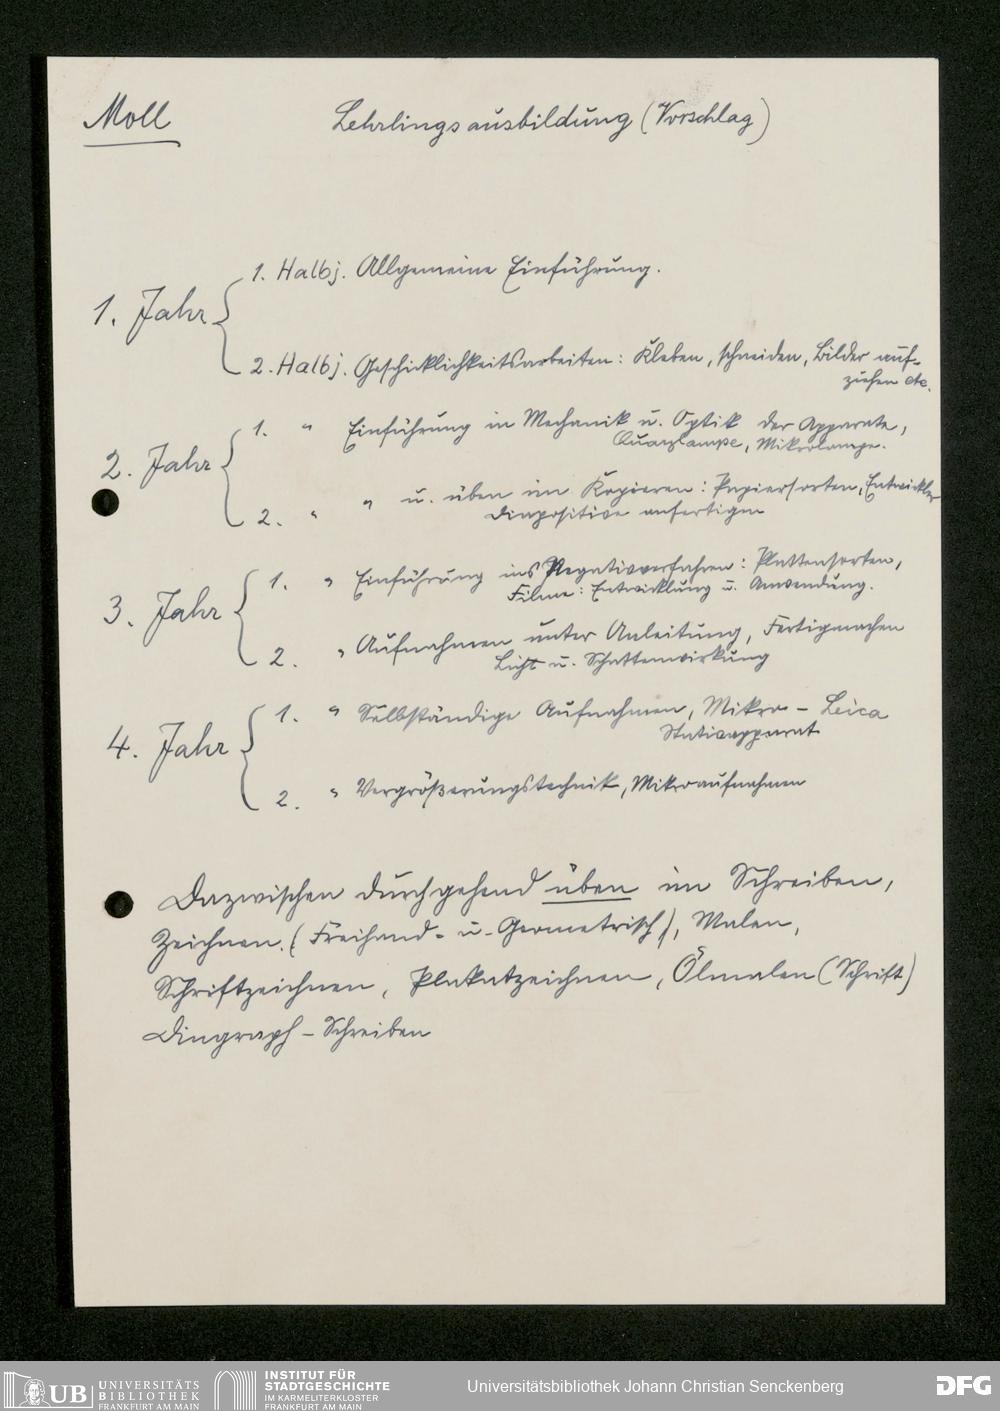 Moll
Lehrlingsausbildung (Vorschlag)
1. Jahr
1. Halbj. Allgemeine Einführung.
2. Halbj. Geschicklichkeitsarbeiten: Kleben, schneiden, Bilder auf-
ziehen etc.
2. Jahr
1. " Einführung in Mechanik u. Optik der Apparate,
Quarzlampe, Mikrolampe.
2. " " u. üben im Kopieren: Papiersorten, Entwickler
Diapositive anfertigen
3. Jahr
1. " Einführung ins Negativverfahren: Plattensorten,
Filme: Entwicklung u. Anwendung.
2. " Aufnahmen unter Anleitung, Fertigmachen
Licht u. Schattenwirkung
4. Jahr
1. " Selbständige Aufnahmen, Mikro - Leica
Stativapparat
2. " Vergrößerungstechnik, Mikroaufnahmen
Dazwischen durchgehend üben im Schreiben,
Zeichnen. (Freihand- u. Geometrisch), Malen,
Schriftzeichnen, Plakatzeichnen, Ölmalen (Schrift)
Diagraph - Schreiben
UB UNIVERSITÄTS
BIBLIOTHEK
FRANKFURT AM MAIN
INSTITUT FÜR
STADTGESCHICHTE
IM KARMELITERKLOSTER
FRANKFURT AM MAIN
Universitätsbibliothek Johann Christian Senckenberg
DFG